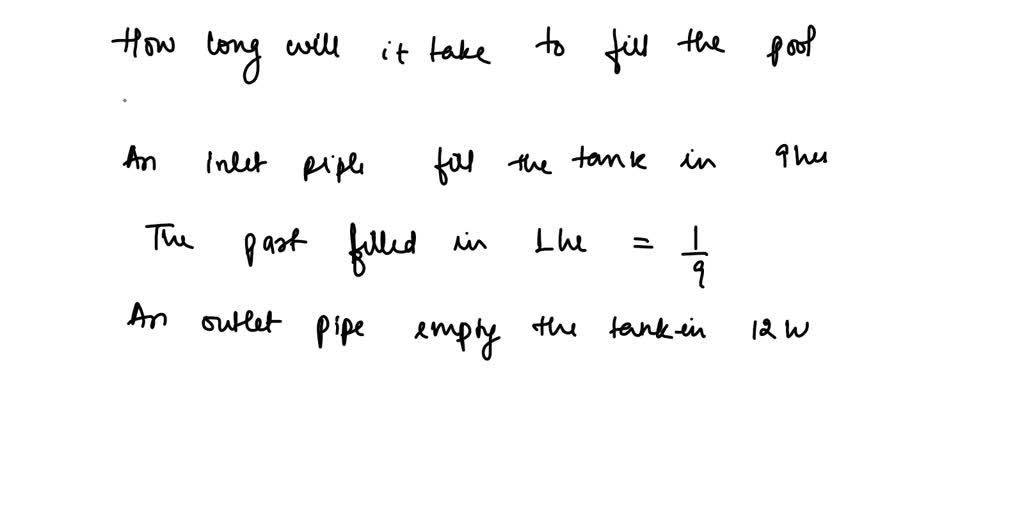 How long will it take to fill the pool
An inlet pipe fill the tank in 9hr
The part filled in 1hr = 1/9
An outlet pipe empty the tank in 12 h